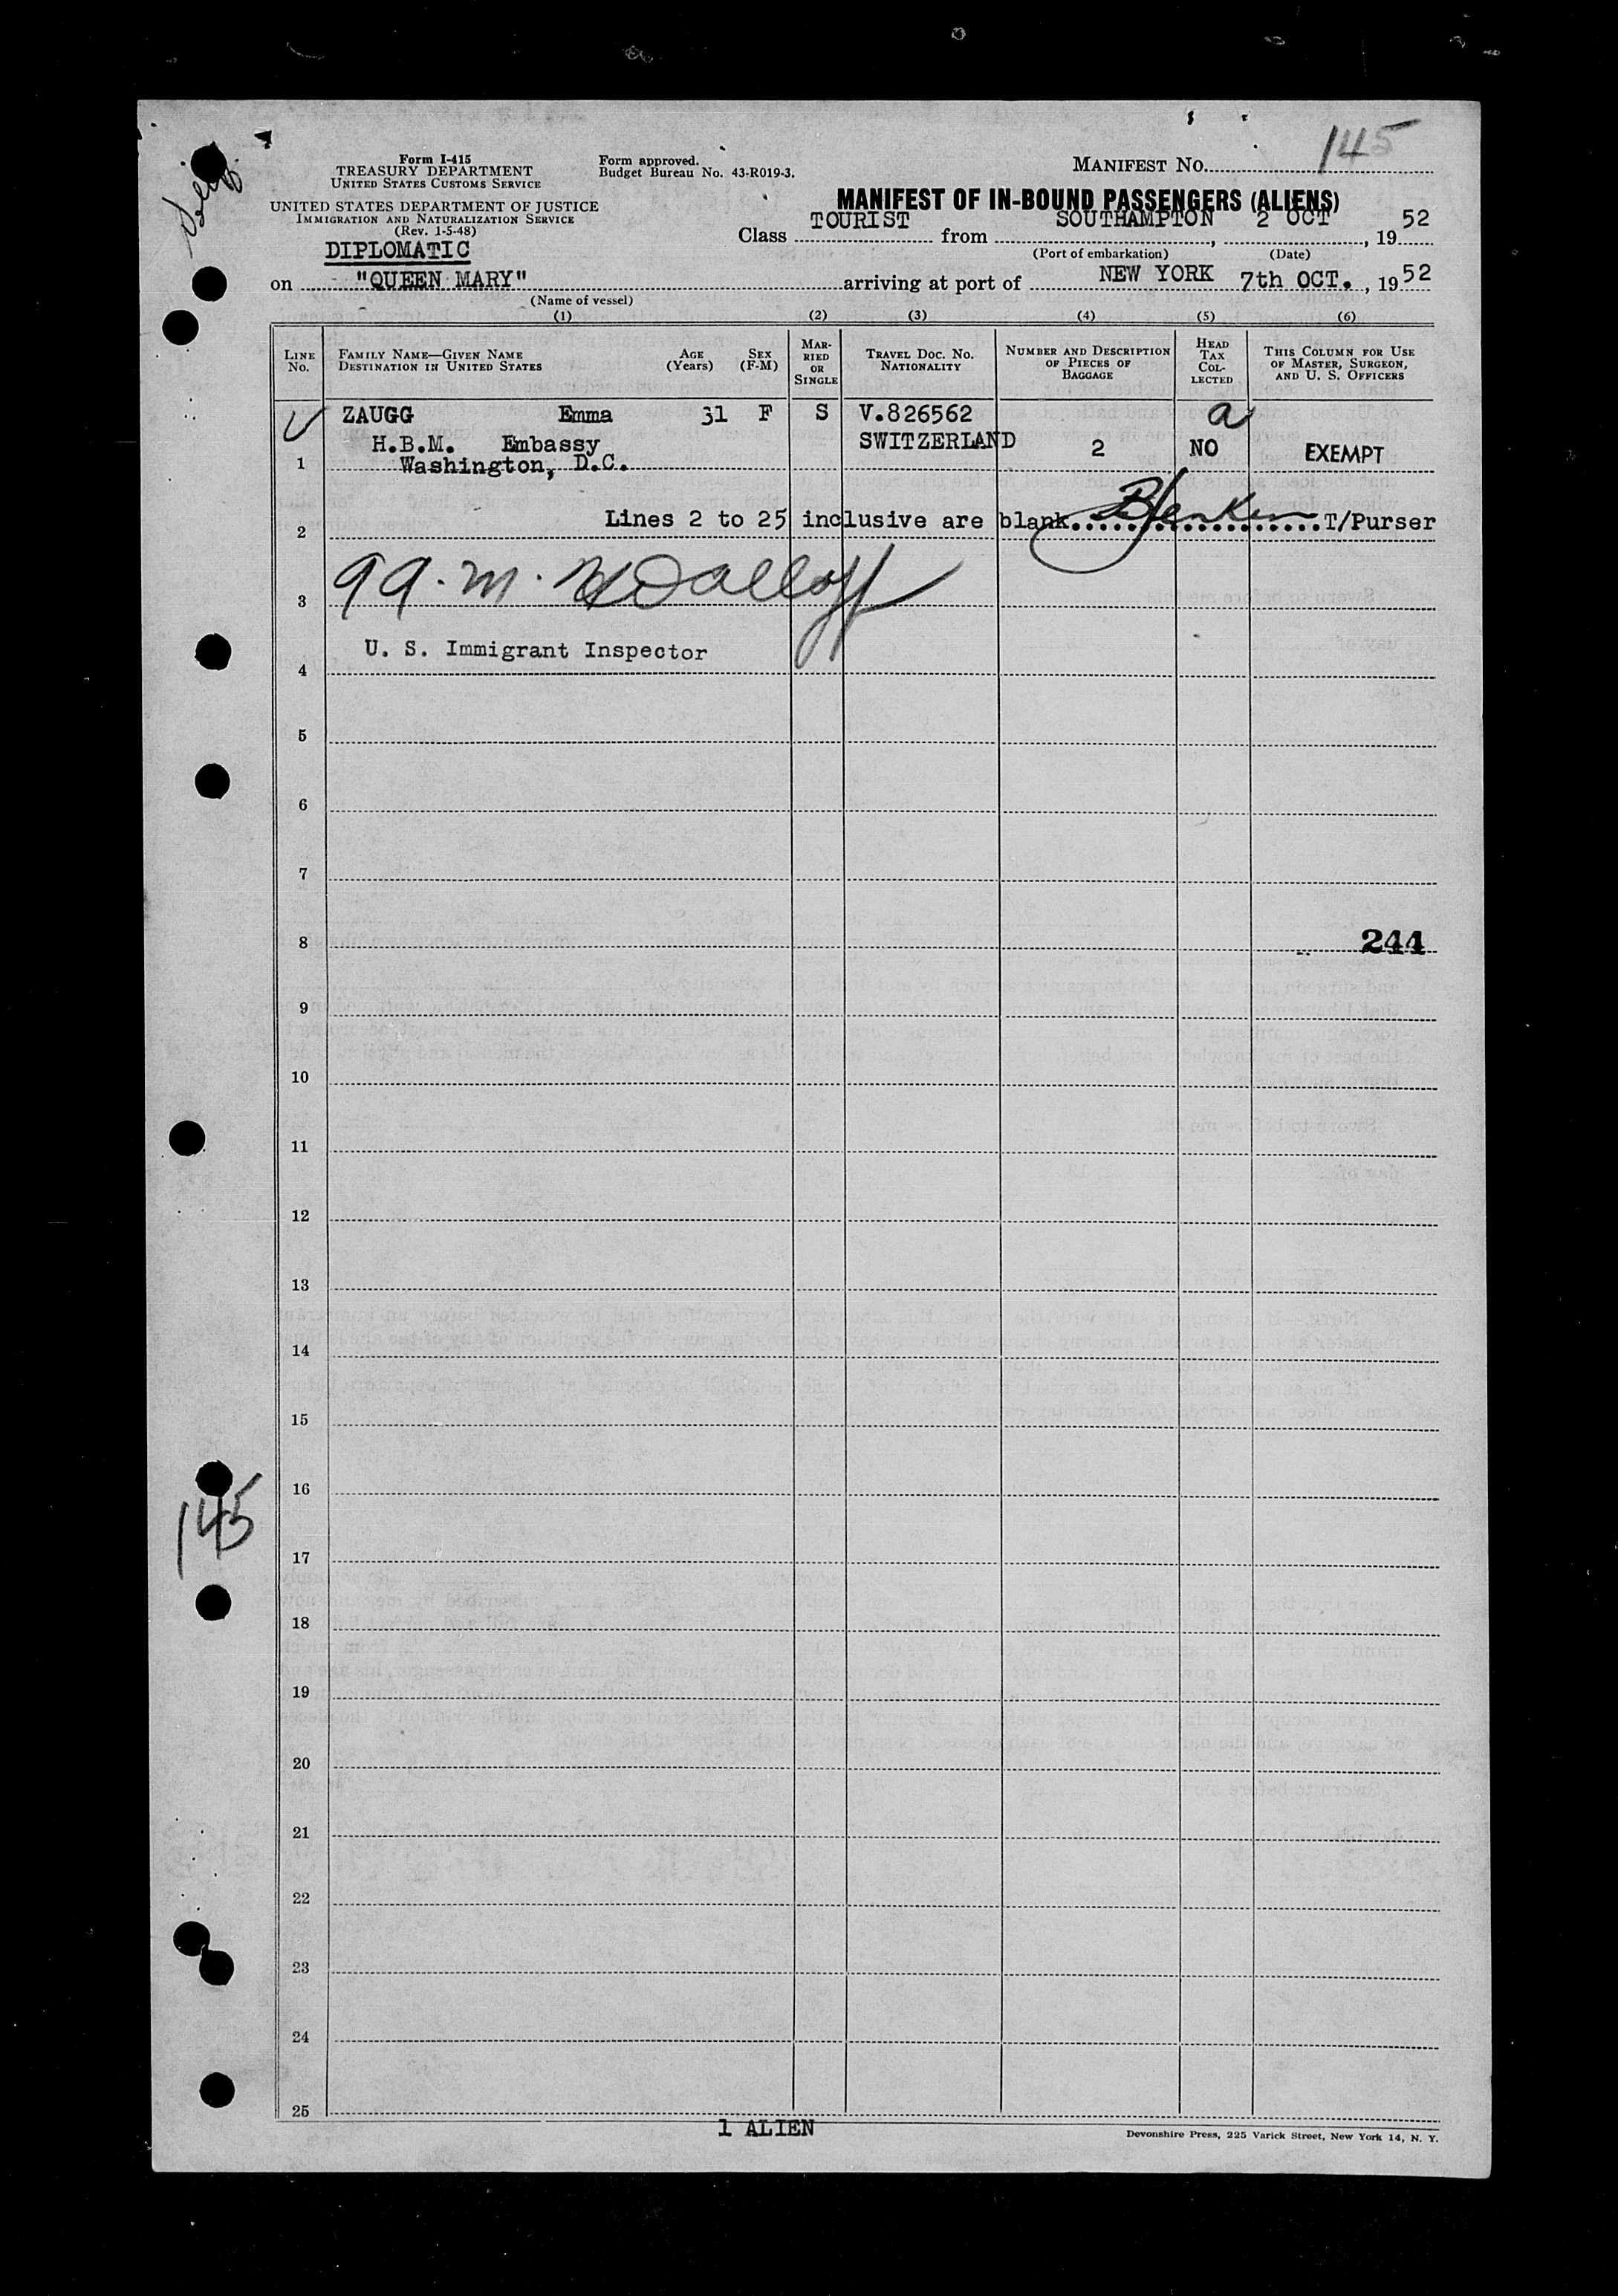 145
Form I-415
TREASURY DEPARTMENT
UNITED STATES CUSTOMS SERVICE
UNITED STATES DEPARTMENT OF JUSTICE
IMMIGRATION AND NATURALIZATION SERVICE
(Rev. 1-5-48)
Form approved.
Budget Bureau No. 43-R019-3.
MANIFEST No.
MANIFEST OF IN-BOUND PASSENGERS (ALIENS)
DIPLOMATIC
Class TOURIST from SOUTHAMPTON, 2 OCT, 19 52
(Port of embarkation) (Date)
on "QUEEN MARY" arriving at port of NEW YORK 7th OCT., 19 52
(Name of vessel)
(1) (2) (3) (4) (5) (6)
LINE No.
FAMILY NAME—GIVEN NAME
DESTINATION IN UNITED STATES
AGE (Years)
SEX (F-M)
MARRIED OR SINGLE
TRAVEL DOC. NO.
NATIONALITY
NUMBER AND DESCRIPTION OF PIECES OF BAGGAGE
HEAD TAX COLLECTED
THIS COLUMN FOR USE OF MASTER, SURGEON, AND U. S. OFFICERS
ZAUGG Emma 31 F S V.826562 a
H.B.M. Embassy SWITZERLAND 2 NO EXEMPT
1 Washington, D.C.
2 Lines 2 to 25 inclusive are blank T/Purser
3
U. S. Immigrant Inspector
4
5
6
7
8 244
9
10
11
12
13
14
15
16
145
17
18
19
20
21
22
23
24
25
1 ALIEN
Devonshire Press, 225 Varick Street, New York 14, N. Y.